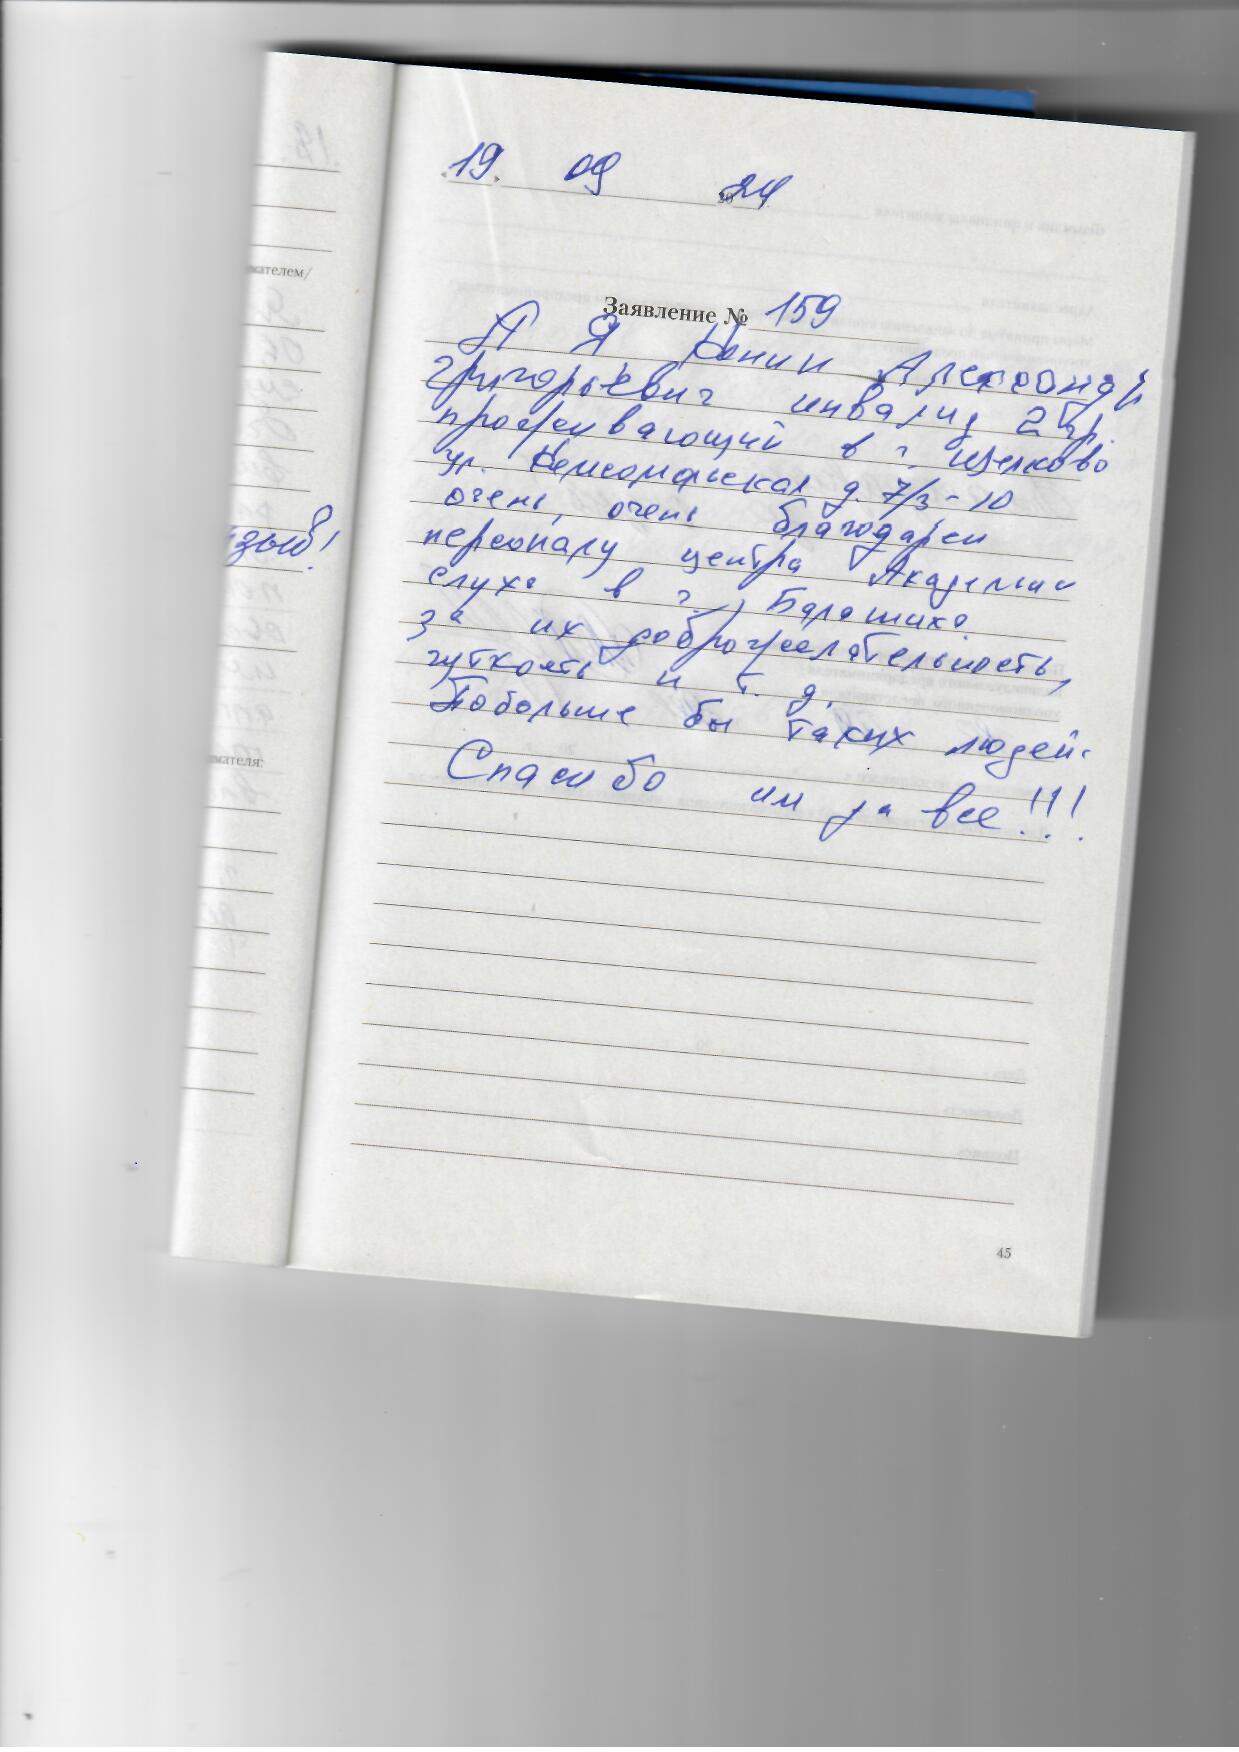 "19" 09 2024
Заявление № 159
Я Конин Александр
Григорьевич инвалид 2 гр.
проживающий в г. Щелково
ул. Комсомольская д. 7/3-10
очень, очень благодарен
персоналу центра Академии
слуха в г. Балашиха
за их доброжелательность,
чуткость и т. д.
Побольше бы таких людей.
Спасибо им за все!!!
45
ателем/
мателя: